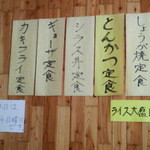 しょうが焼定食
とんかつ定食
シラス丼定食
ギョーザ定食
カキフライ定食
ライス大盛
本日は